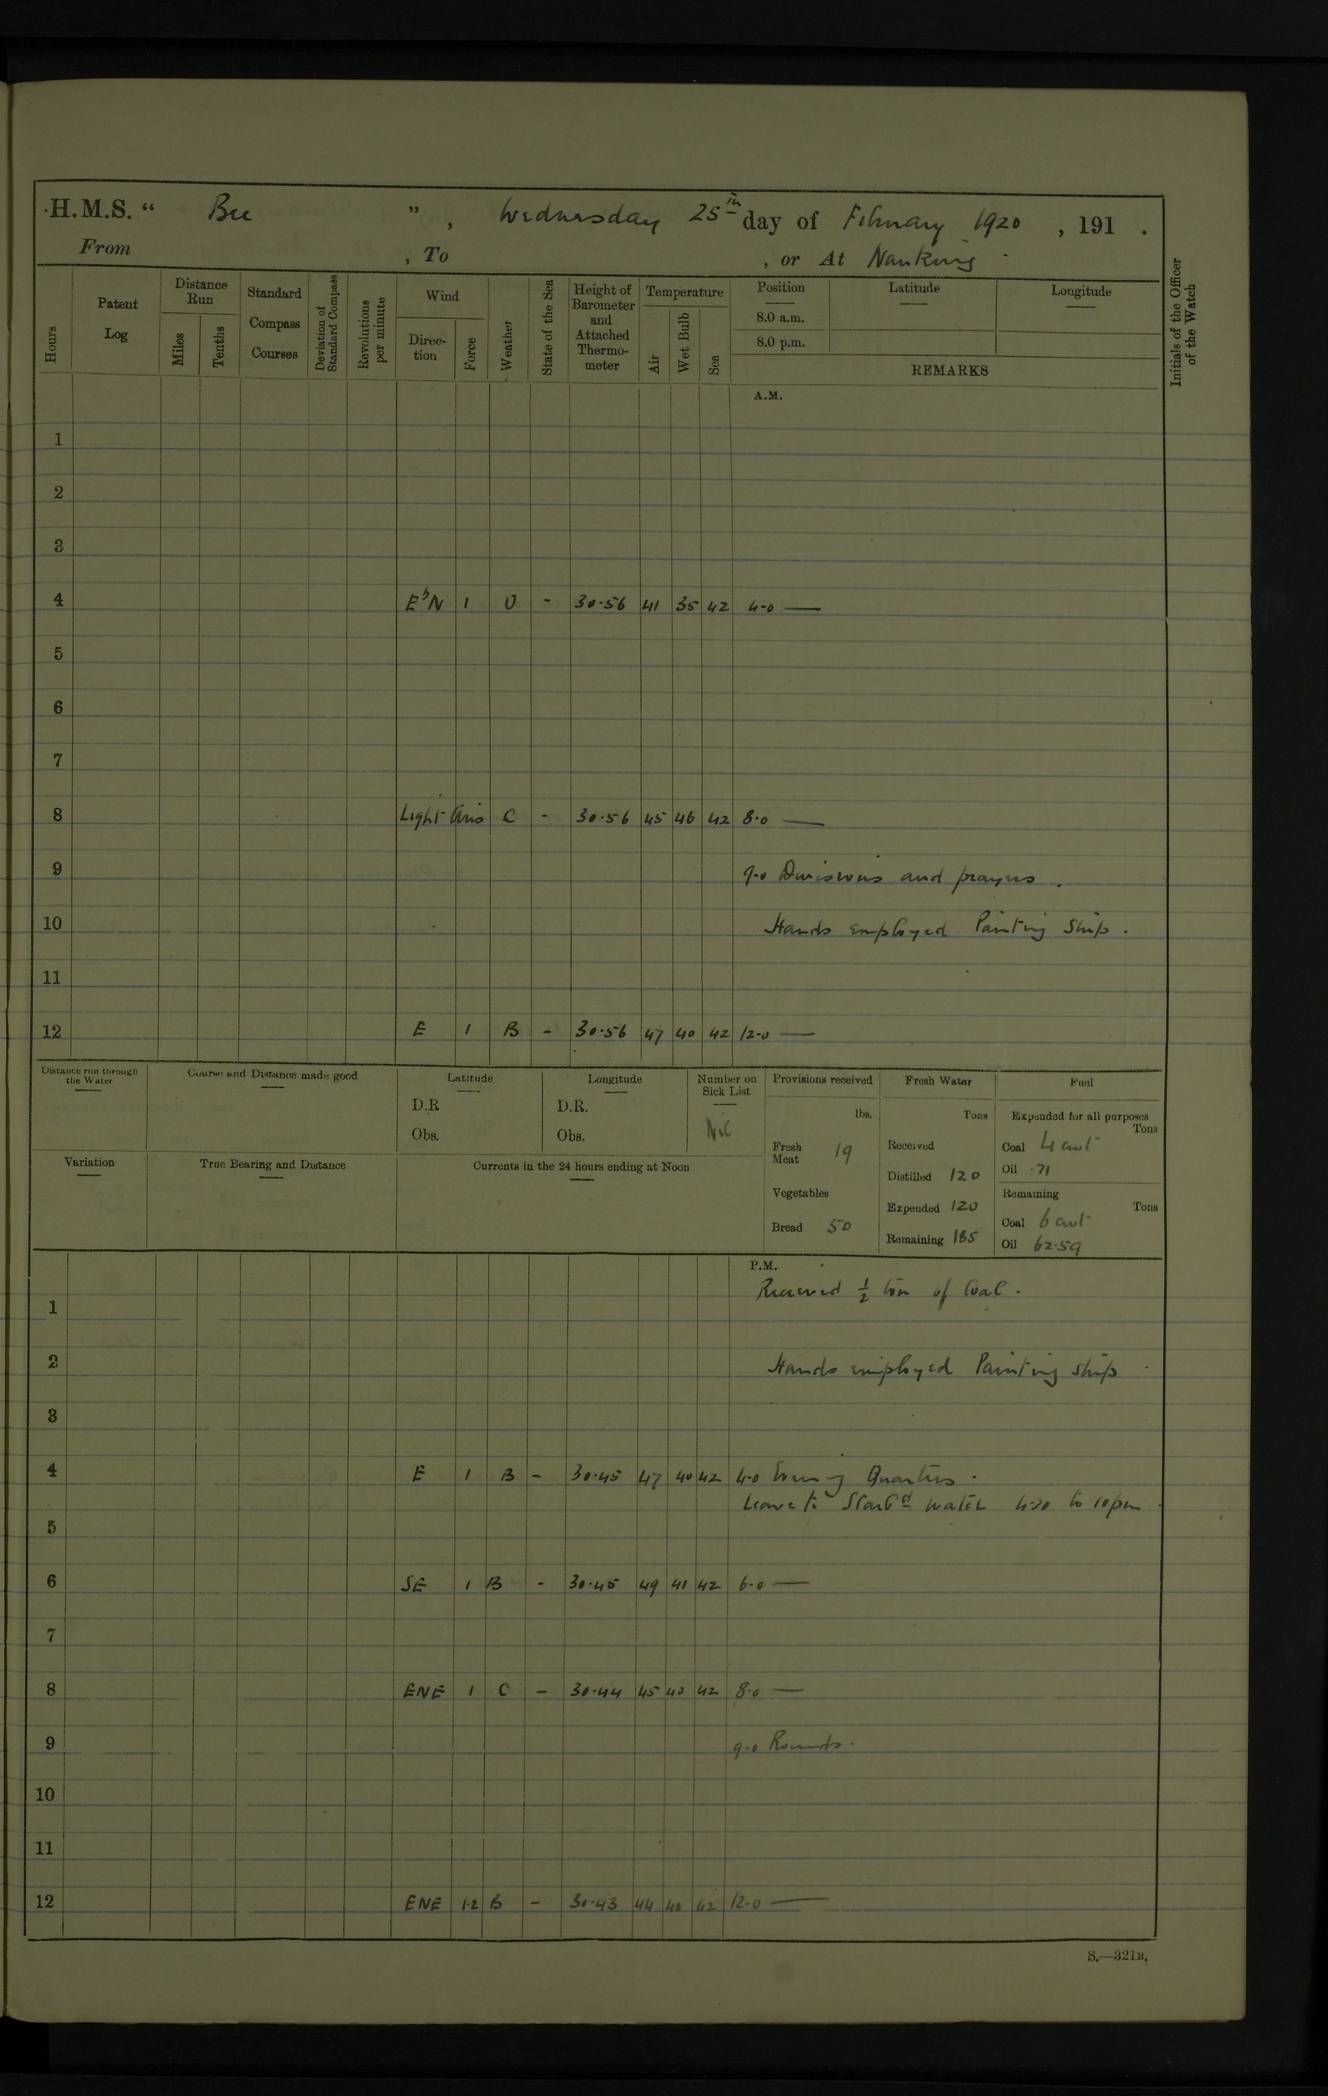 H.M.S. “ Bee ” , Wednesday 25th day of February 1920 , 191 .
From , To , or At Nanking
Hours
Patent Log
Distance Run
Miles
Tenths
Standard Compass Courses
Deviation of Standard Compass
Revolutions per minute
Wind
Direction
Force
Weather
State of the Sea
Height of Barometer and Attached Thermometer
Temperature
Air
Wet Bulb
Sea
Position
8.0 a.m.
8.0 p.m.
Latitude
Longitude
REMARKS
Initials of the Officer of the Watch
A.M.
1
2
3
4 EbN 1 O - 30.56 41 35 42 4.0 —
5
6
7
8 Light airs C - 30.56 45 46 42 8.0 —
9 9.0 Divisions and prayers.
10 Hands employed Painting Ship.
11
12 E 1 B - 30.56 47 40 42 12.0 —
Distance run through the Water
Course and Distance made good
Latitude
D.R
Obs.
Longitude
D.R.
Obs.
Number on Sick List
Nil
Provisions received
lbs.
Fresh Meat 19
Vegetables
Bread 50
Fresh Water
Tons
Received
Distilled 120
Expended 120
Remaining 185
Fuel
Expended for all purposes
Tons
Coal 4 cwt
Oil .71
Remaining
Tons
Coal 6 cwt
Oil 62.59
Variation
True Bearing and Distance
Currents in the 24 hours ending at Noon
P.M.
Received ½ ton of Coal.
1
2 Hands employed Painting ship
3
4 E 1 B - 30.45 47 40 42 4.0 Evening Quarters.
Leave to Starbd watch 4.30 to 10pm
5
6 SE 1 B - 30.45 49 41 42 6.0 —
7
8 ENE 1 C - 30.44 45 40 42 8.0 —
9 9.0 Rounds.
10
11
12 ENE 1.2 B - 30.43 44 40 42 12.0 —
S.—321B.